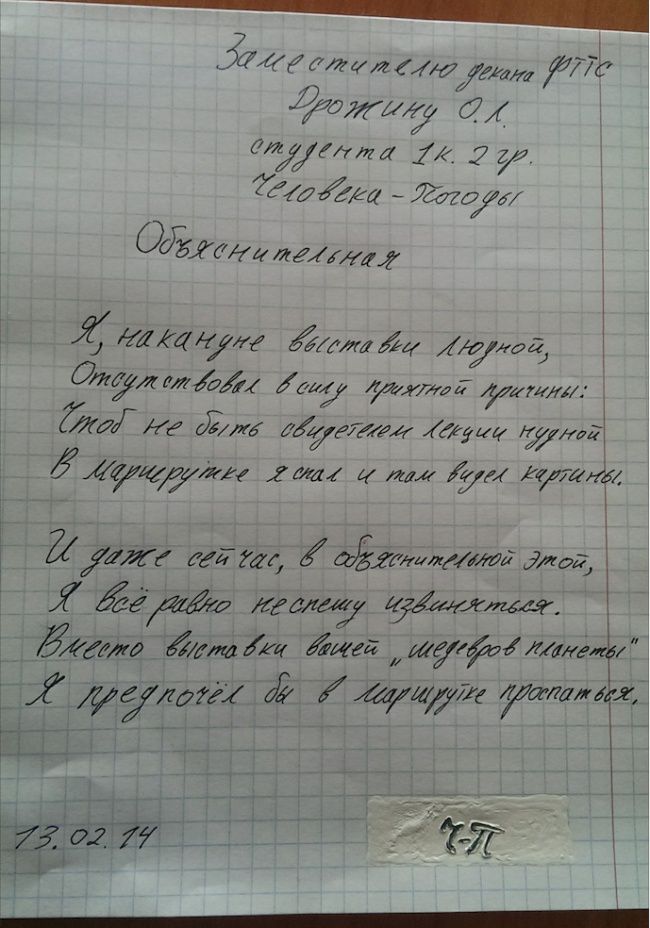 Заместителю декана ФТТС
Дрожину О.Л.
студента 1к. 2 гр.
Человека-Погоды
Объяснительная
Я, накануне выставки людной,
Отсутствовал в силу приятной причины:
Чтоб не быть свидетелем лекции нудной
В маршрутке я спал и там видел картины.
И даже сейчас, в объяснительной этой,
Я всё равно неспешу извиняться.
Вместо выставки вашей „шедевров планеты"
Я предпочёл бы в маршрутке проспаться.
13.02.14
Ч-П